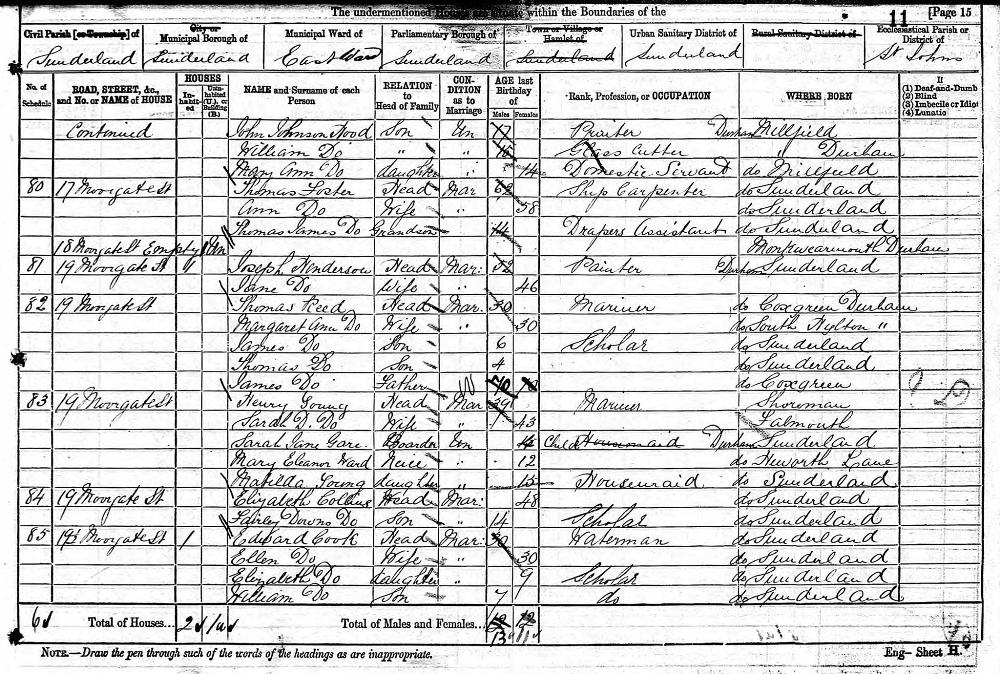 The undermentioned Houses are situate within the Boundaries of the
11 [Page 15
Civil Parish [or Township] of
City or Municipal Borough of
Municipal Ward of
Parliamentary Borough of
Town or Village or Hamlet of
Urban Sanitary District of
Rural Sanitary District of
Ecclesiastical Parish or District of
Sunderland Sunderland East Ward Sunderland Sunderland Sunderland St Johns
No. of Schedule
ROAD, STREET, &c., and No. or NAME of HOUSE
HOUSES
Inhabited
Uninhabited (U.), or Building (B.)
NAME and Surname of each Person
RELATION to Head of Family
CONDITION as to Marriage
AGE last Birthday of
Males Females
Rank, Profession, or OCCUPATION
WHERE BORN
If
(1) Deaf-and-Dumb
(2) Blind
(3) Imbecile or Idiot
(4) Lunatic
Continued John Johnson Hood Son Un 17 Printer Durham Millfield
William Do " " Glass Cutter " Durham
Mary Ann Do daughter 14 Domestic Servant do Millfield
80 17 Moorgate St Thomas Foster Head Mar Ship Carpenter do Sunderland
Ann Do Wife " 58 do Sunderland
Thomas James Do Grandson 14 Drapers Assistant do Sunderland
18 Moorgate St Empty 1 Un Monkwearmouth Durham
81 19 Moorgate St 1 Joseph Henderson Head Mar: 52 Painter Durham Sunderland
Jane Do Wife " 46
82 19 Moorgate St Thomas Reed Head Mar. 30 Mariner do Coxgreen Durham
Margaret Ann Do Wife " 30 do South Hylton "
James Do Son 6 Scholar do Sunderland
Thomas Do Son 4 do Sunderland
James Do Father W 70 do Coxgreen
83 19 Moorgate St Henry Young Head Mar 39 Mariner
Sarah D. Do Wife " 43 Falmouth
Sarah Jane Boarder Un Child Housemaid Durham Sunderland
Mary Eleanor Ward Neice " 12 do Heworth Lane
Matilda Young daughter " 15 Housemaid do Sunderland
84 19 Moorgate St Elizabeth Collins Head Mar: 48 do Sunderland
Fairley Downs Do Son " 14 Scholar do Sunderland
85 19½ Moorgate St 1 Edward Cook Head Mar: 30 Waterman do Sunderland
Ellen Do Wife " 30 do Sunderland
Elizabeth Do daughter " 9 Scholar do Sunderland
William Do Son 7 do do Sunderland
6d Total of Houses... 2d 1ud Total of Males and Females... 12 12
13d 11d
NOTE.—Draw the pen through such of the words of the headings as are inappropriate.
Eng– Sheet H.